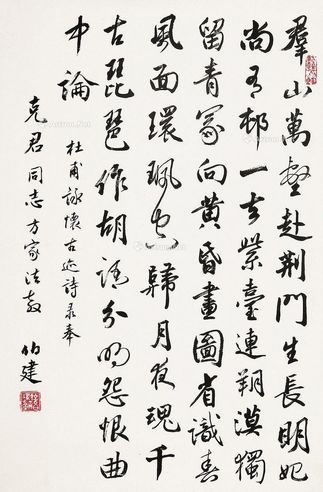 羣山萬壑赴荆門生長明妃
尚有邨一去紫臺連朔漠獨
留青冢向黄昏畫圖省識春
風面環珮空歸月夜魂千
古琵琶作胡語分明怨恨曲
中論
杜甫詠懷古迹詩录奉
克君同志方家法教
伯建